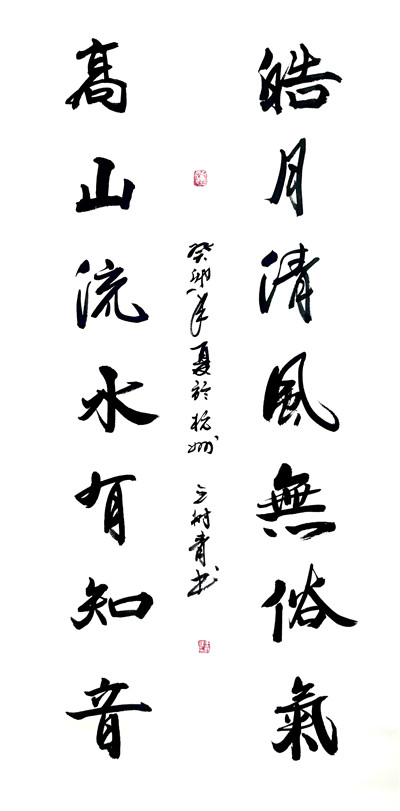 皓月清風無俗氣
高山流水有知音
癸卯年夏於杭州 王樹青書